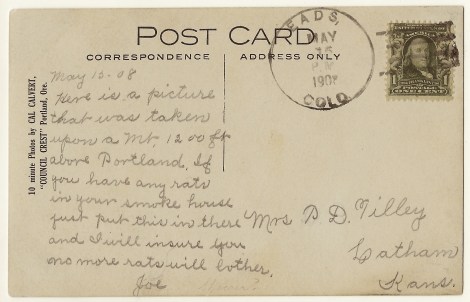 POST CARD
CORRESPONDENCE
ADDRESS ONLY
EADS,
MAY
15
P M
1908
COLO.
1
ONE CENT
10 minute Photos by CAL CALVERT,
"COUNCIL CREST" Portland, Ore.
May 15-08
Here is a picture
that was taken
upon a Mt. 1200 ft
above Portland. If
you have any rats
in your smoke house
just put this in there
and I will insure you
no more rats will bother.
Joe
Mrs P D. Tilley
Latham
Kans.